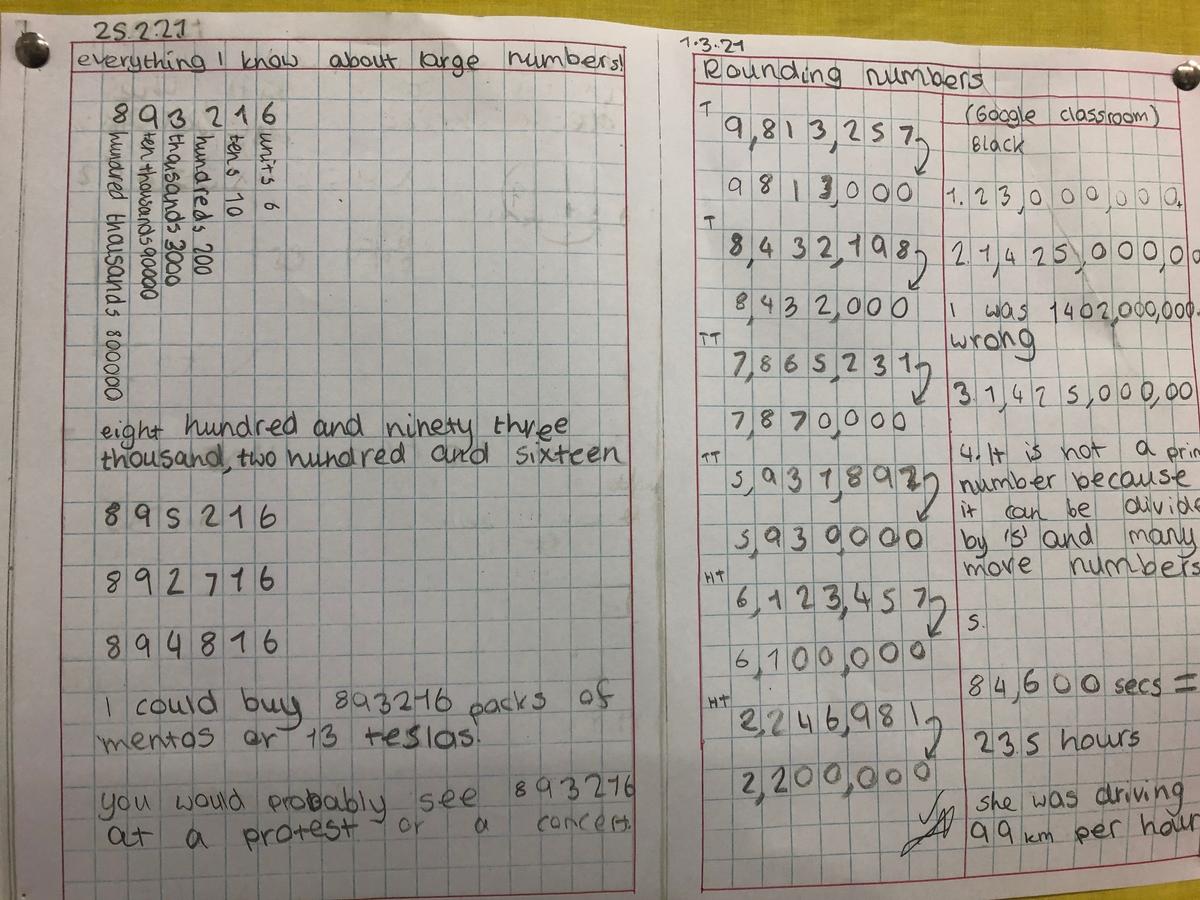 25.2.21
everything I know about large numbers!
8 9 3 2 1 6
hundred thousands 800000
ten thousands 90000
thousands 3000
hundreds 200
tens 10
units 6
eight hundred and ninety three
thousand, two hundred and sixteen
8 9 5 2 1 6
8 9 2 7 1 6
8 9 4 8 1 6
I could buy 893216 packs of
mentos or 13 teslas.
you would probably see 893216
at a protest or a concert.
1.3.21
Rounding numbers
T
9,813,257
9813,000
T
8,432,198
8,432,000
TT
7,865,231
7,870,000
TT
5,931,892
5,930,000
HT
6,123,457
6,100,000
HT
2,246,981
2,200,000
(Google classroom)
Black
1. 23,000,000
2. 1,425,000,00
I was 1402,000,000
wrong
3. 1,425,000,00
4. It is not a prim
number because
it can be divide
by '5' and many
more numbers
5.
84,600 secs =
23.5 hours
she was driving
99 km per hour